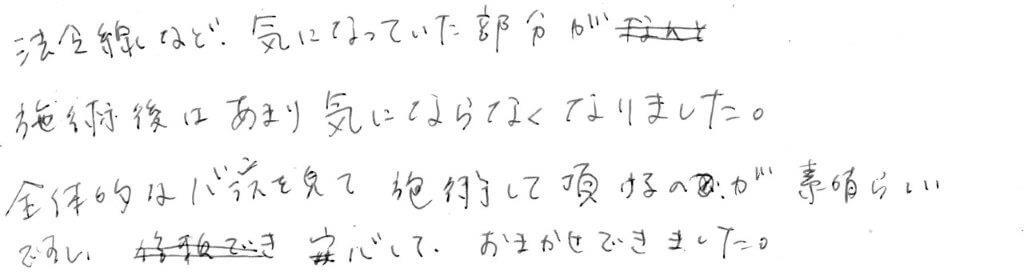 法令線など、気になっていた部分が
施術後はあまり気にならなくなりました。
全体的なバランスを見て施術して頂けるのが素晴らしい
ですし、安心して、おまかせできました。